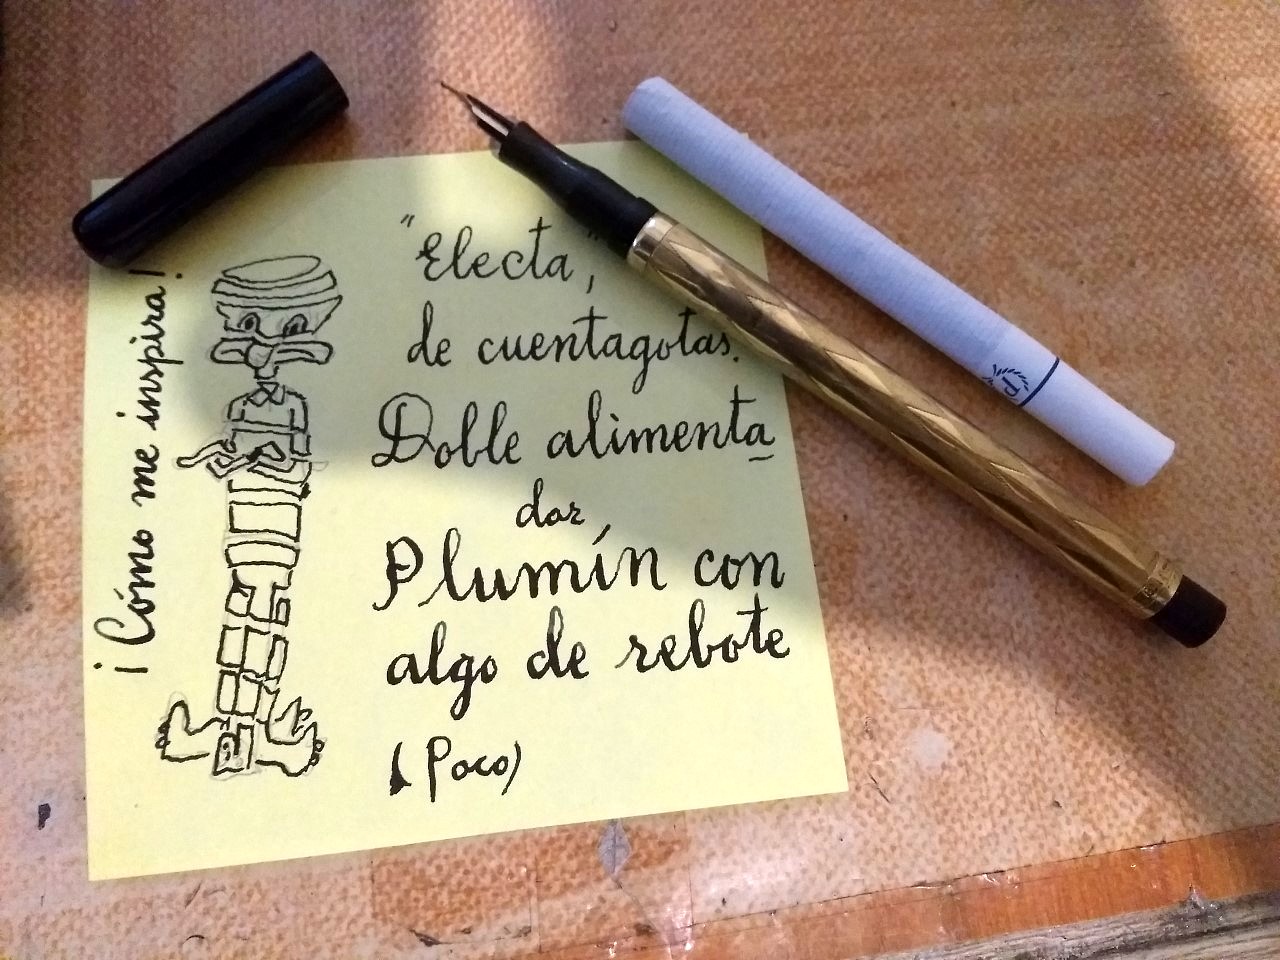 ¡Cómo me inspira!
"Electa",
de cuentagotas.
Doble alimenta
dor
Plumín con
algo de rebote
(Poco)
P